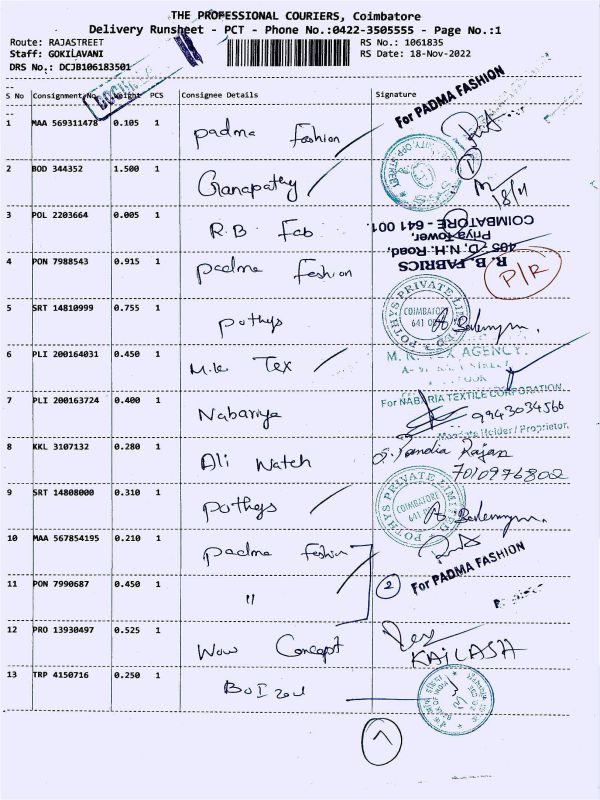 THE PROFESSIONAL COURIERS, Coimbatore
Delivery Runsheet - PCT - Phone No.:0422-3505555 - Page No.:1
Route: RAJASTREET
RS No.: 1061835
Staff: GOKILAVANI
RS Date: 18-Nov-2022
DRS No.: DCJB106183501
S No Consignment No. Weight PCS Consignee Details Signature
For PADMA FASHION
1 MAA 569311478 0.105 1 Padma Fashion
2 BOD 344352 1.500 1 Ganapathy
18/11
3 POL 2203664 0.005 1 R.B. Fab
COIMBATORE - 641 001.
Priya Tower,
405 D, N.H. Road,
R. B. FABRICS
4 PON 7988543 0.915 1 Padma Fashion
P/R
5 SRT 14810999 0.755 1 Pothys
POTHYS PRIVATE LIMITED
COIMBATORE
641 001
6 PLI 200164031 0.450 1 M.K Tex
M. K. TEX AGENCY.
7 PLI 200163724 0.400 1 Nabariya
For NABARIA TEXTILE CORPORATION
9943034566
Mandate Holder / Proprietor.
8 KKL 3107132 0.280 1 Ali Watch
S. Pandia Rajan
7010976802
9 SRT 14808000 0.310 1 Pothys
POTHYS PRIVATE LIMITED
COIMBATORE
641 001
10 MAA 567854195 0.210 1 Padma Fashion
For PADMA FASHION
11 PON 7990687 0.450 1 "
2
12 PRO 13930497 0.525 1 Wow Concept
KAILASH
13 TRP 4150716 0.250 1 BOI
BANK OF INDIA